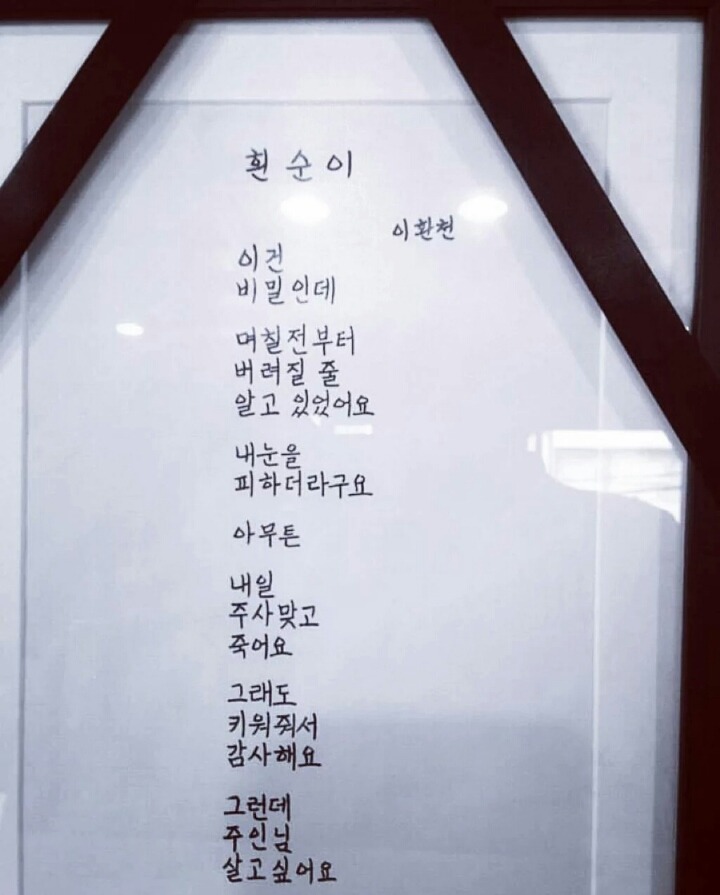 흰순이
이환천
이건
비밀인데
며칠전부터
버려질 줄
알고 있었어요
내눈을
피하더라구요
아무튼
내일
주사맞고
죽어요
그래도
키워줘서
감사해요
그런데
주인님
살고싶어요